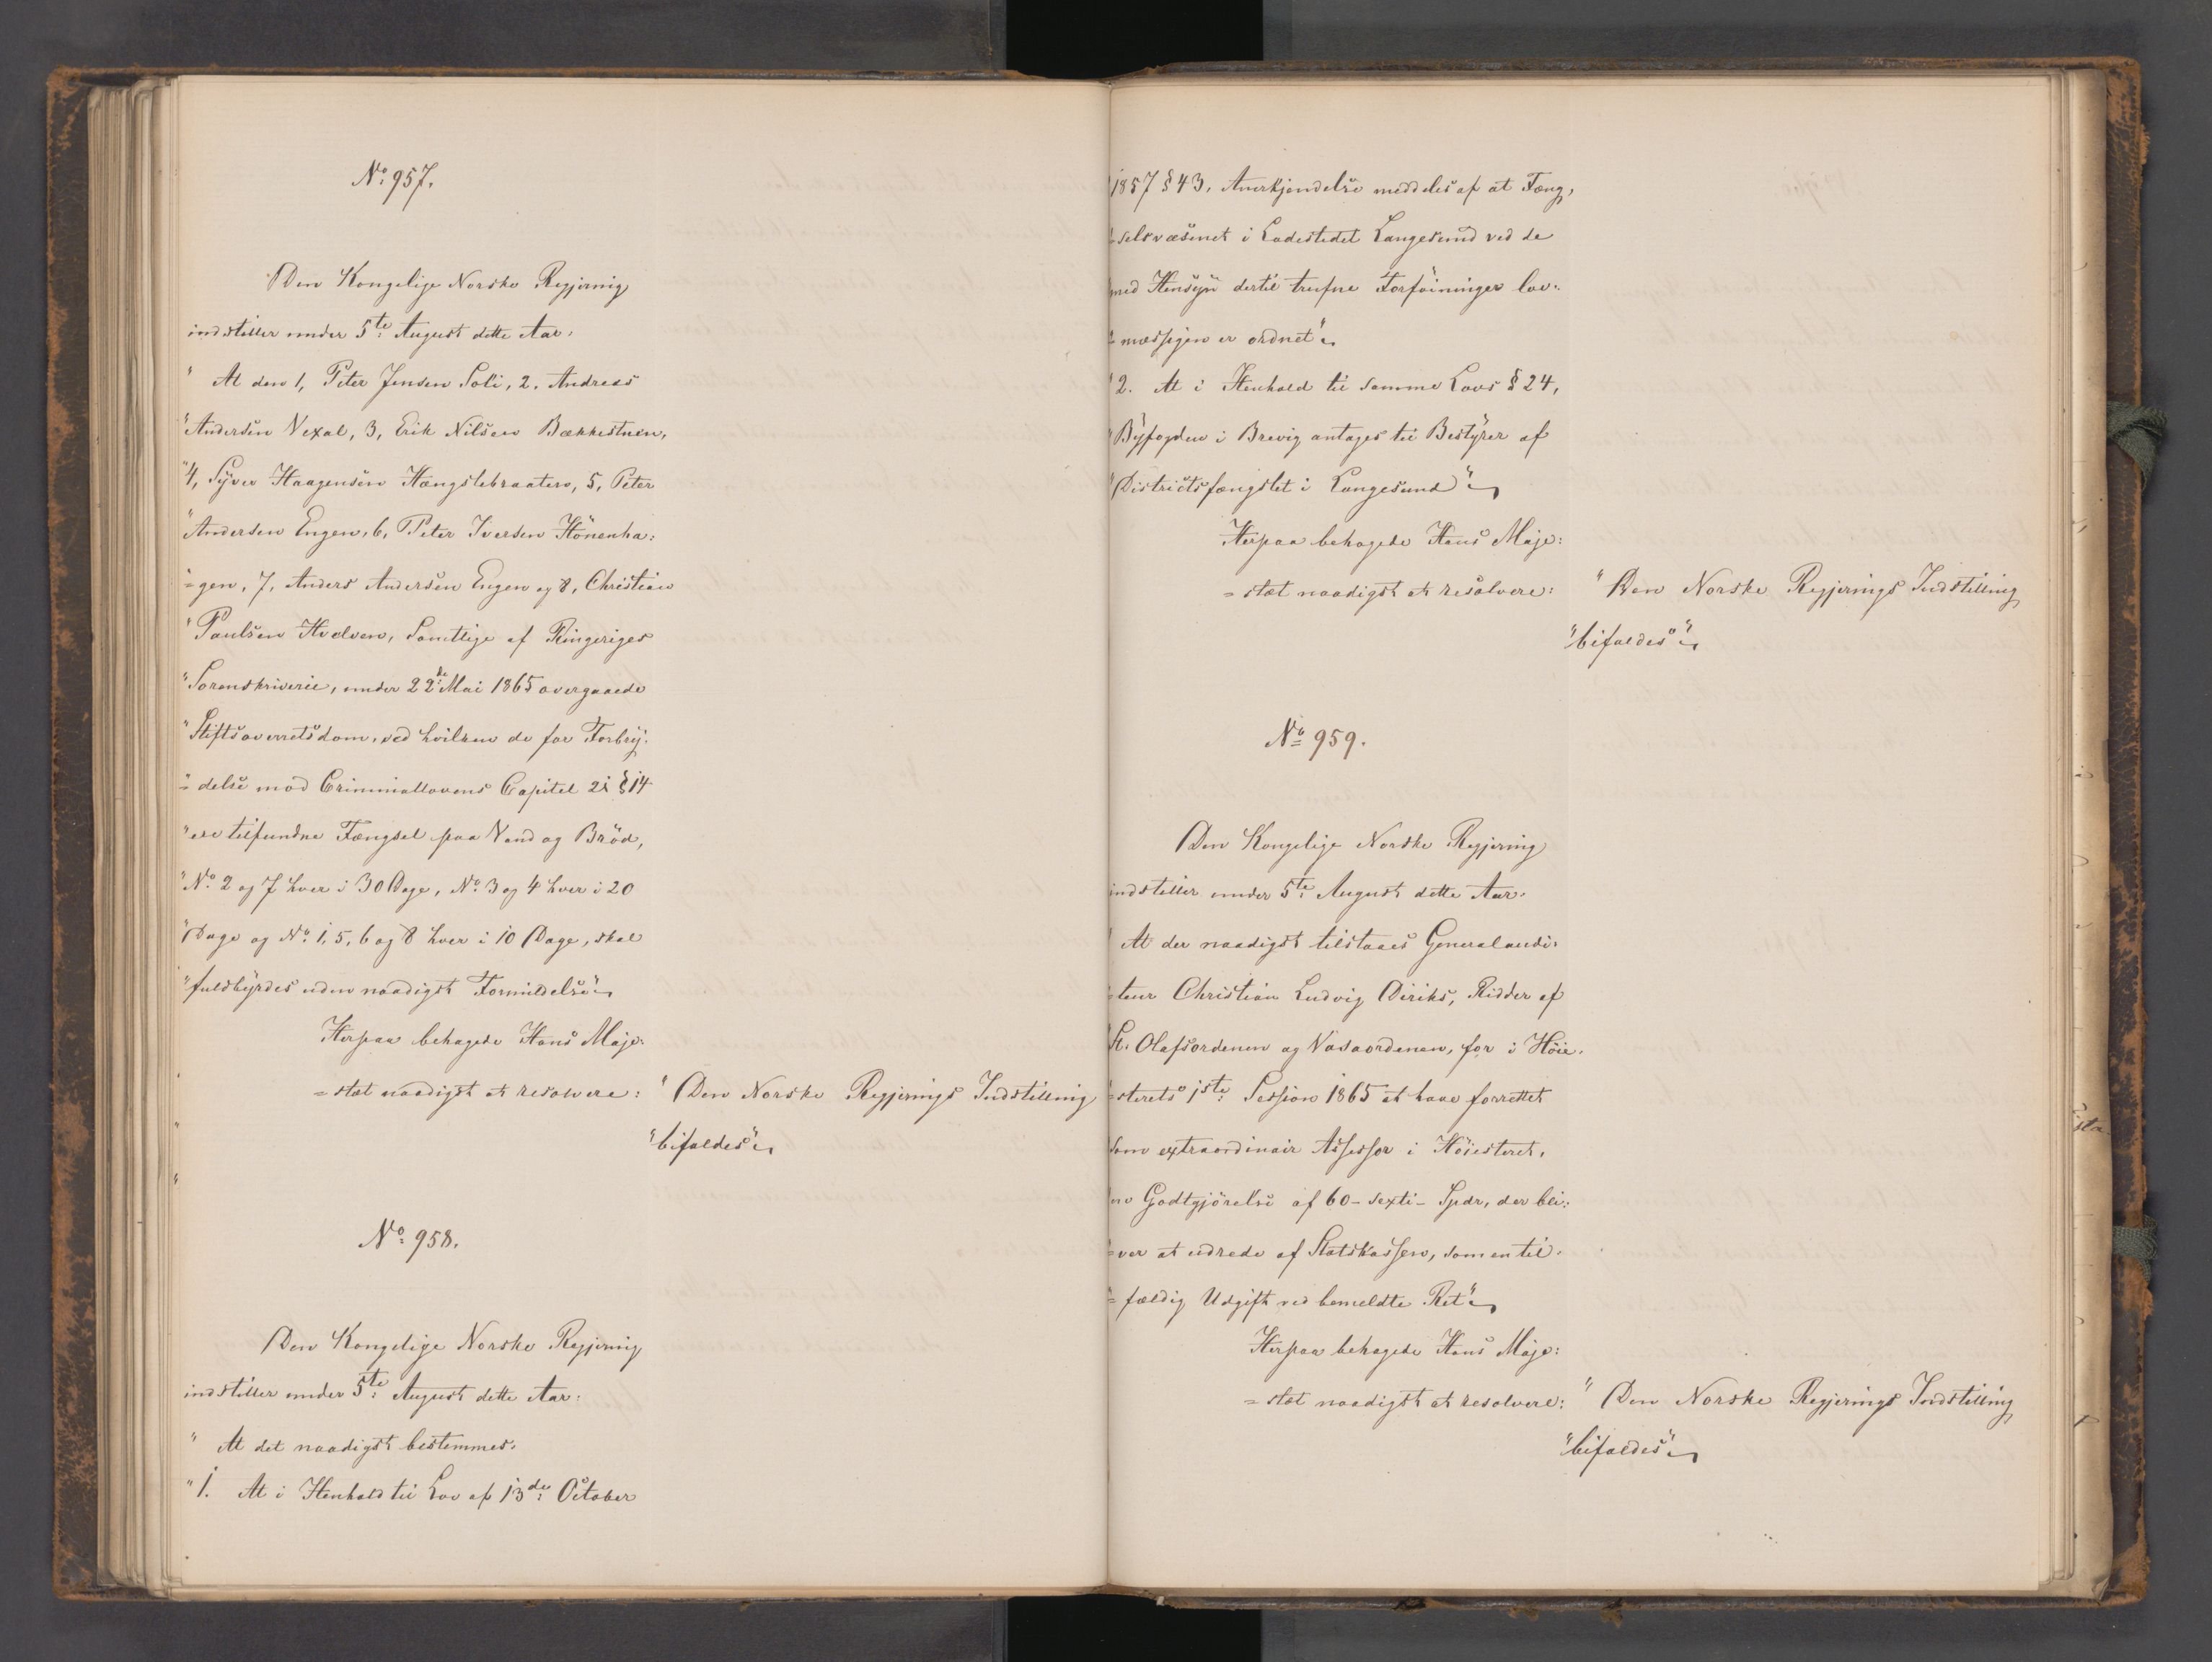 No: 957.
Den Kongelige Norske Regjering
indstiller under 5te: August dette Aar:
" At den 1, Peter Jensen Soli, 2, Andreas
"Andersen Vexal, 3, Erik Nilsen Bækkestuen,
"4, Syver Haagensen Hængslebraaten, 5, Peter
"Andersen Engen, 6, Peter Iversen Hönenha:
"=gen, 7, Anders Andersen Engen og 8, Christian
"Paulsen Hvalven, Samtlige af Ringeriges
"Sorenskriverie, under 22de: Mai 1865 overgaaede
"Stiftsoverretsdom, ved hvilken de for Forbry:
"=delse mod Criminallovens Capitel 21 § 14
"ere tilfundne Fængsel paa Vand og Bröd,
"No: 2 og 7 hver i 30 Dage, No: 3 og 4 hver i 20
"Dage og No: 1, 5, 6 og 8 hver i 10 Dage, skal
"fuldbyrdes uden naadigst Formildelse"
Herpaa behagede Hans Maje:
=stæt naadigst at resolvere: "Den Norske Regjerings Indstilling
"bifaldes"
No: 958.
Den Kongelige Norske Regjering
indstiller under 5te: August dette Aar:
" At det naadigst bestemmes:
"1. At i Henhold til Lov af 13de: October
"1857 § 43, Anerkjendelse meddeles af at Fæng,
"=selsvæsenet i Ladestedet Langesund ved de
"med Hensyn dertil trufne Forföininger lov:
"=mæssigen er ordnet"
"2. At i Henhold til samme Lovs § 24,
"Byfogden i Brevig antages til Bestyrer af
"Districtsfængslet i Langesund"
Herpaa behagede Hans Maje:
=stæt naadigst at resolvere: "Den Norske Regjerings Indstilling
"bifaldes"
No= 959.
Den Kongelige Norske Regjering
indstiller under 5te: August dette Aar:
" At der naadigst tilstaaes Generalaudi:
"=teur Christian Ludvig Diriks, Ridder af
"St. Olafsordenen og Vasaordenen, for i Höie:
"=sterets 1ste: Session 1865 at have forrettet
"som extraordinair Assessor i Höiesteret,
"en Godtgjörelse af 60 - sexti - Spdr, der bli:
"=ver at udrede af Statskassen, som en til:
"=fældig Udgift ved bemeldte Ret"
Herpaa behagede Hans Maje:
=stæt naadigst at resolvere: "Den Norske Regjerings Indstilling
"bifaldes"